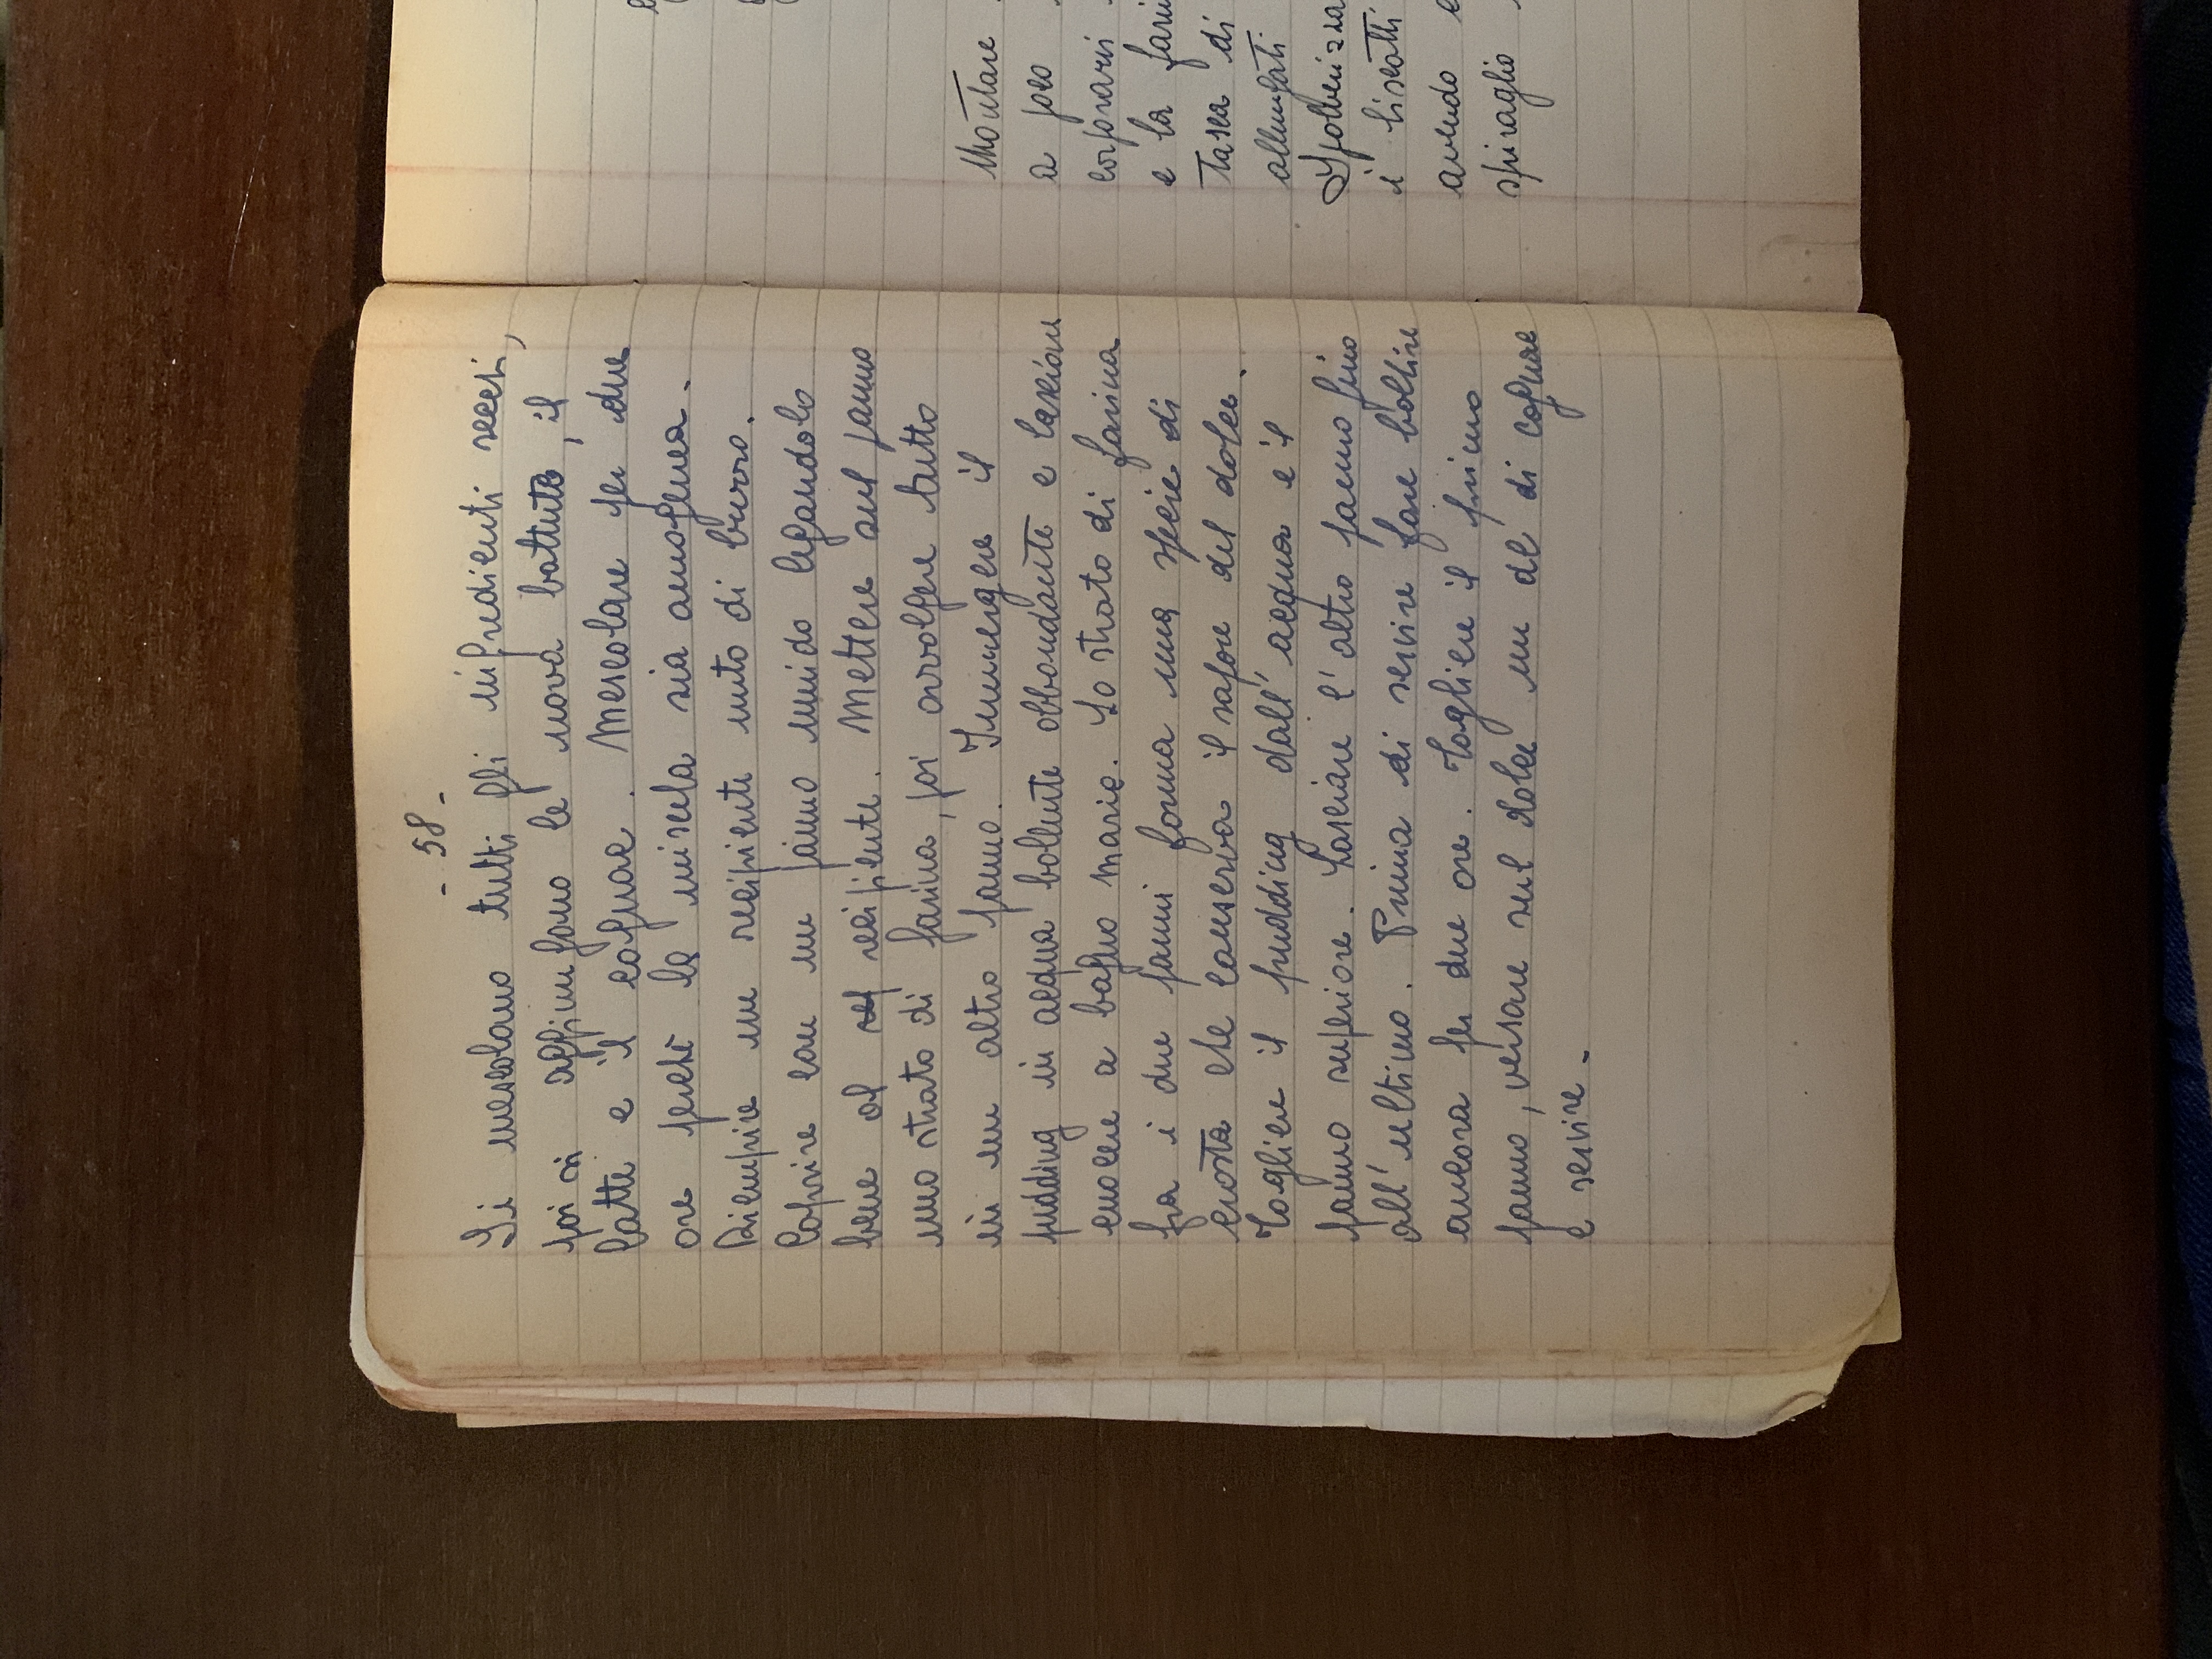 - 58 -
Si mescolano tutti gli ingredienti secchi,
poi si aggiungono le uova battute, il
latte e il cognac. Mescolare per due
ore perchè la miscela sia omogenea.
Riempire un recipiente unto di burro.
Coprire con un panno umido legandolo
bene al recipiente. Mettere sul panno
uno strato di farina, poi avvolgere tutto
in un altro panno. Immergere il
pudding in acqua bollente abbondante e lasciare
cuocere a bagno maria. Lo strato di farina
fra i due panni forma una specie di
crosta che conserva il sapore del dolce.
Togliere il pudding dall'acqua e il
panno superiore. Lasciare l'altro panno fino
all'ultimo. Prima di servire fare bollire
ancora per due ore. Togliere il primo
panno, versare sul dolce un dl di cognac
e servire.
Montare
a poco
corporarvi
e la fari
tasca di
allungati
Spolverizza
i biscotti
avendo c
spiraglio